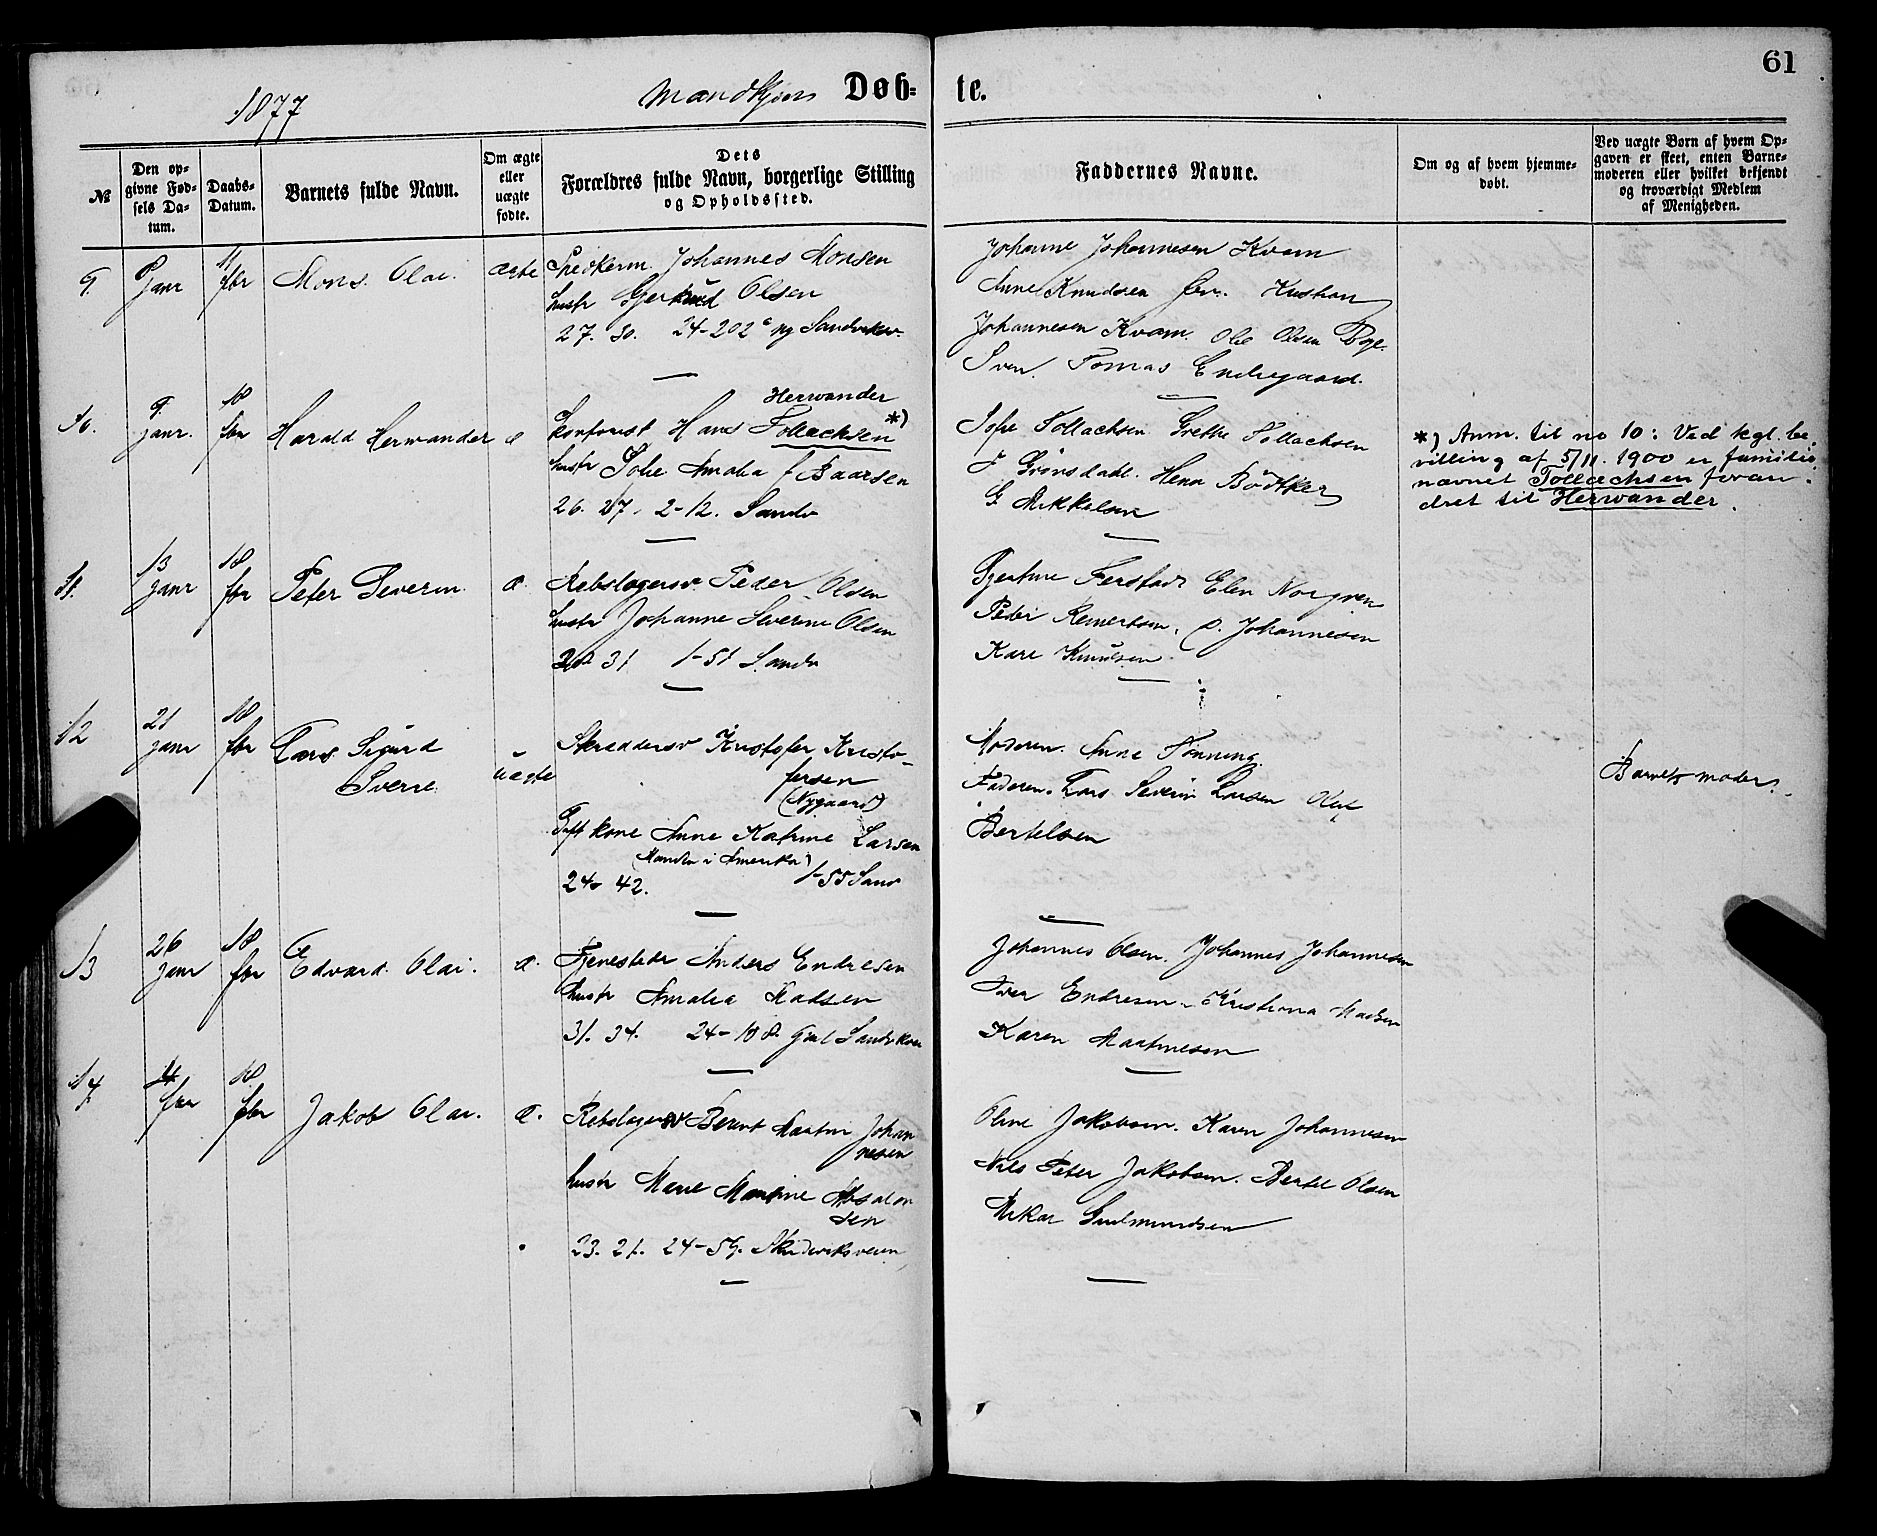 61
1877
Mandkjøn Døb-
te.
№
Den op-
givne Fød-
sels Da-
tum.
Daabs-
Datum.
Barnets fulde Navn.
Om ægte
eller
uægte
fødte.
Dets
Forældres fulde Navn, borgerlige Stilling
og Opholdssted.
Faddernes Navne.
Om og af hvem hjemme-
døbt.
Ved uægte Børn af hvem Op-
gaven er skeet, enten Barne-
moderen eller hvilket bekjendt
og troværdigt Medlem
af Menigheden.
9.
9 janr
11 fbr
Mons Olai.
ægte
Johannes Monsen
hustr Gjertrud Olsen
27. 30. 24-202 ny Sandviksv.
Johanne Johannesen Kvam
Anne Knudsen
Johannesen Kvam. Ole Olsen
Tomas Endregaard.
10.
9 janr.
18 fbr
Harald Herwander
æ
Herwander
Hans Tollachsen *)
hustr Sofie Amalia f Baarsen
26. 27. 2-12. Sandv
Sofie Tollachsen Grethe Tollachsen
J Grönsdahl. Henr Bödtker
G Mikkelsen
*) Anm. til no 10: Ved kgl. be-
villing af 5/11. 1900 er familie-
navnet Tollachsen foran-
dret til Herwander.
11.
13 janr
18 fbr
Peter Severin
æ.
Rebslagersv Peder Olsen
hustr Johanne Severine Olsen
31 1-51 Sandv
Elen Norgren
Peder Reinertsen, P. Johannesen
Kari Knudsen
12
21 janr
18 fbr
Lars Sigurd
Sverre
uægte
Skreddersv Kristofer Kristo-
fersen
(Nygaard)
Gift kone Anne Katrine Larsen
(Manden i Amerika)
24- 42. 1-55 Sandv
Moderen. Anne Tonning.
Faderen. Lars Severin Larsen Olaf
Bertelsen
Barnets moder.
13
26 janr
18 fbr
Edvard Olai.
æ.
Tjenestedr Anders Endresen
hustr Amalia Madsen
31. 34. 24-108. Gml Sandvikvei
Johannes Olsen. Johannes Johannesen
Iver Endresen. Kristiana Madsen
Karen Martinesen
14
4 fbr
18 fbr
Jakob Olai.
æ.
Rebslagersv Berent Martin Johan
nesen
hustr Marie Martine Absalon
sen
23. 21. 24-59. Skudeviksveien
Oline Jakobsen. Karen Johannesen
Nils Peter Jakobsen. Bertel Olsen
Mikal Gudmundsen